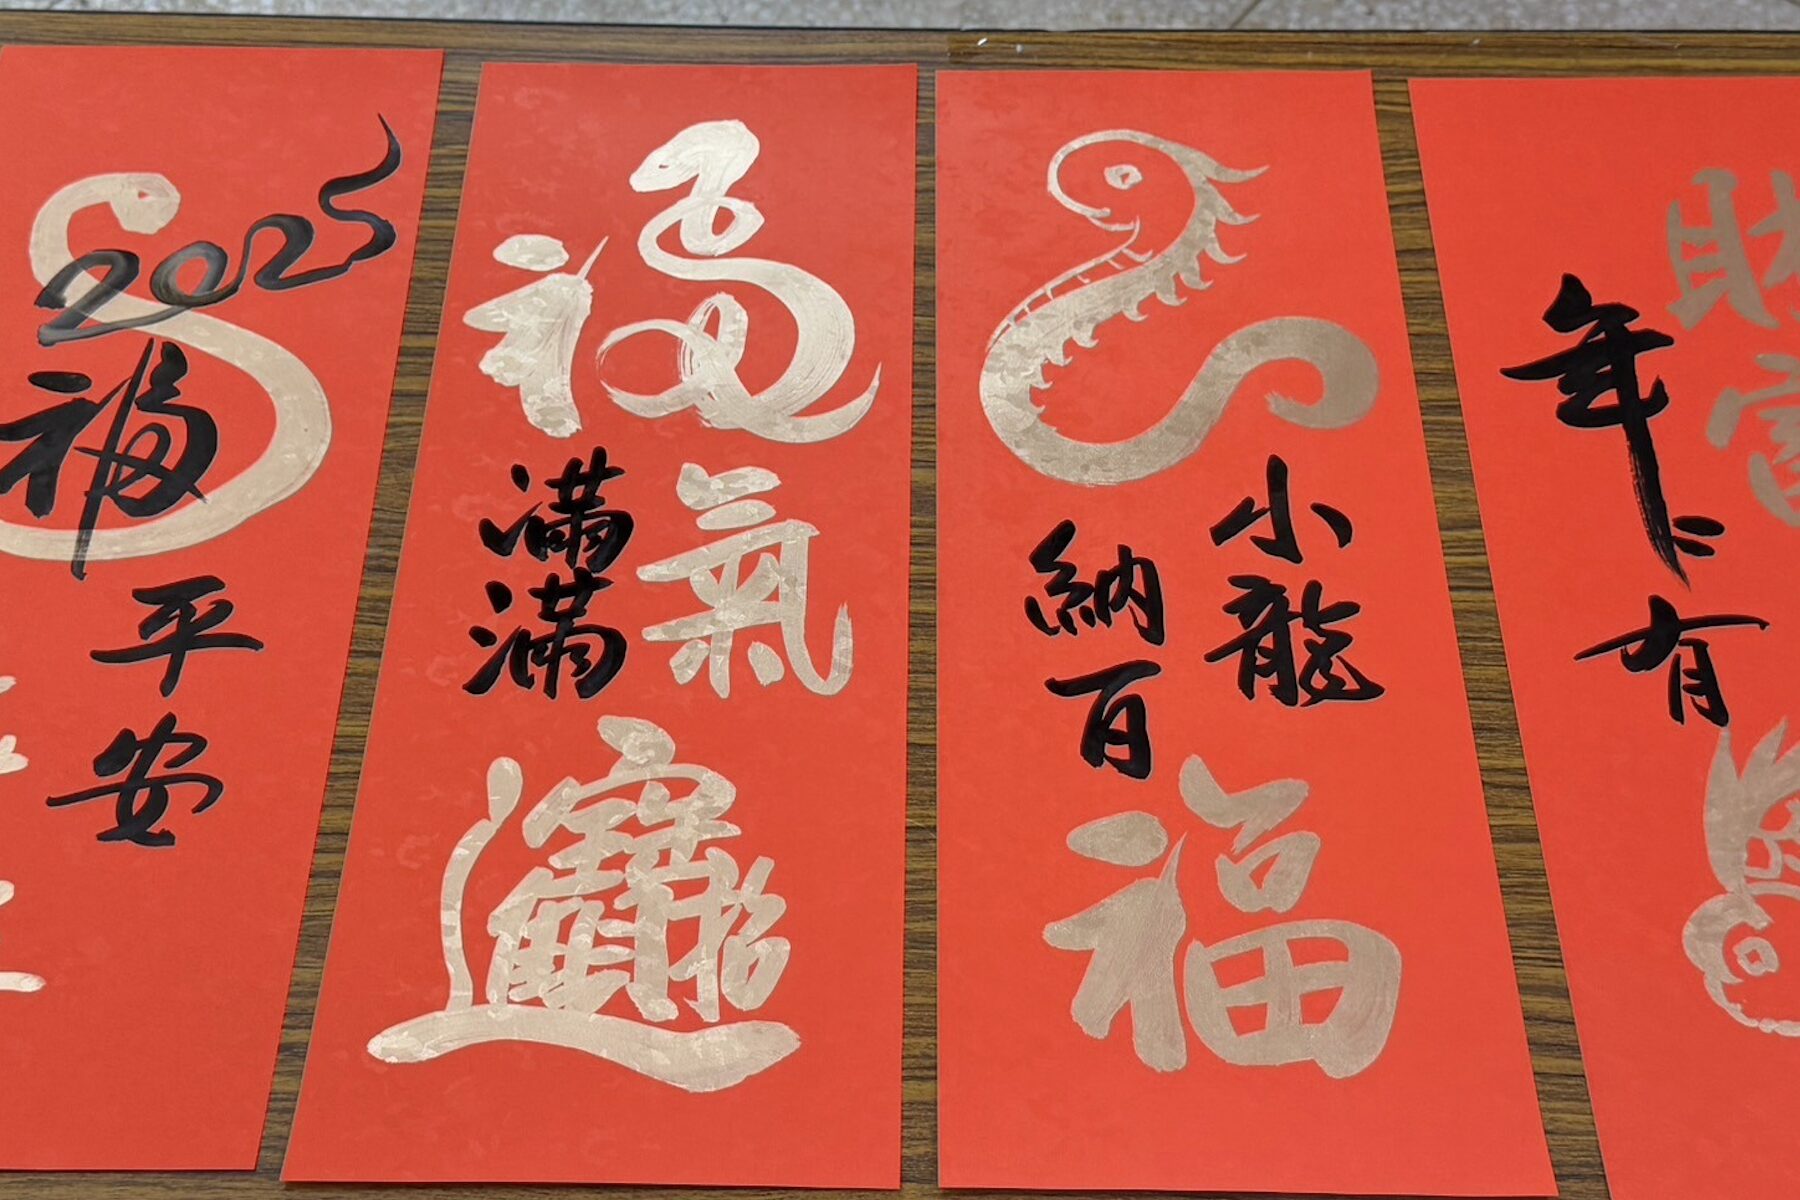 2025
福
平安
福氣
滿滿
招財進寶
小龍
納百
福
財富
年〻有